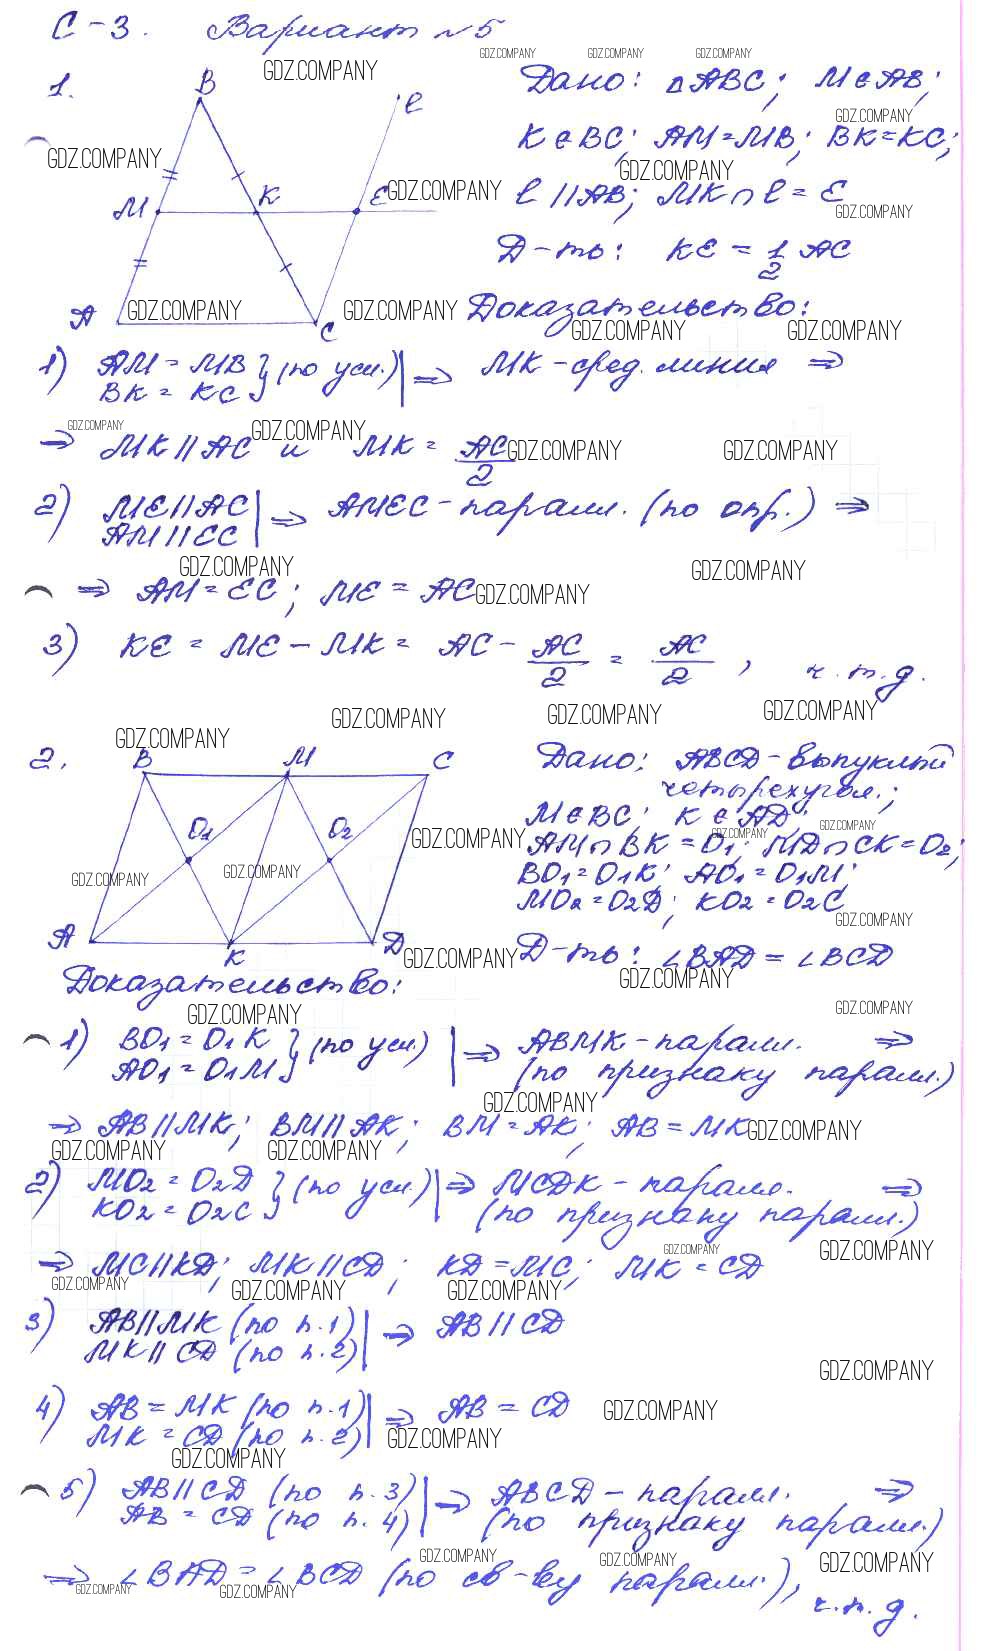 С-3. Вариант №5
1.
B
ℓ
M
K
E
A
C
Дано: △ABC; M∈AB;
K∈BC; AM=MB; BK=KC;
ℓ∥AB; MK∩ℓ=E
Д-ть: KE = 1/2 AC
Доказательство:
1) AM = MB
BK = KC } (по усл.) | ⇒ MK - сред. линия ⇒
⇒ MK∥AC и MK = AC/2
2) ME∥AC
AM∥EC | ⇒ AMEC - паралл. (по опр.) ⇒
⇒ AM = EC; ME = AC
3) KE = ME - MK = AC - AC/2 = AC/2, ч.т.д.
2.
B
M
C
O₁
O₂
A
K
D
Дано: ABCD - выпуклый
четырехугол.;
M∈BC; K∈AD;
AM∩BK=O₁; MD∩CK=O₂;
BO₁=O₁K; AO₁=O₁M;
MO₂=O₂D; KO₂=O₂C
Д-ть: ∠BAD=∠BCD
Доказательство:
1) BO₁=O₁K
AO₁=O₁M } (по усл) | ⇒ ABMK - паралл. ⇒
(по признаку паралл.)
⇒ AB∥MK; BM∥AK; BM=AK; AB=MK
2) MO₂=O₂D
KO₂=O₂C } (по усл.) | ⇒ MCDK - паралл. ⇒
(по признаку паралл.)
⇒ MC∥KD; MK∥CD; KD=MC; MK=CD
3) AB∥MK (по п.1)
MK∥CD (по п.2) | ⇒ AB∥CD
4) AB=MK (по п.1)
MK=CD (по п.2) | ⇒ AB=CD
5) AB∥CD (по п.3)
AB=CD (по п.4) | ⇒ ABCD - паралл. ⇒
(по признаку паралл.)
⇒ ∠BAD=∠BCD (по св-ву паралл.),
ч.т.д.
GDZ.COMPANY